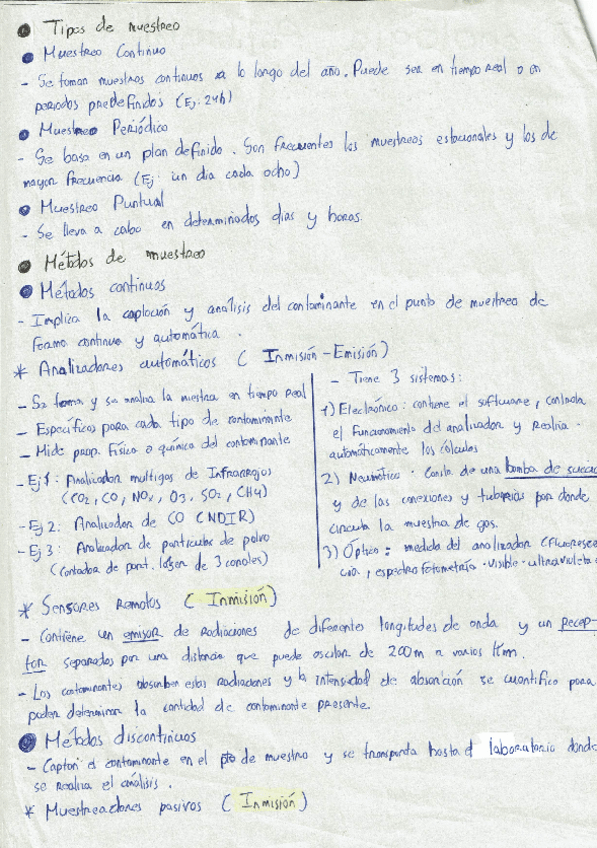 ● Tipos de muestreo
● Muestreo Continuo
- Se toman muestras continuas a lo largo del año. Puede ser en tiempo real o en
periodos predefinidos (Ej: 24h)
● Muestreo Periódico
- Se basa en un plan definido. Son frecuentes los muestreos estacionales y los de
mayor frecuencia (Ej: un día cada ocho)
● Muestreo Puntual
- Se lleva a cabo en determinados días y horas.
● Métodos de muestreo
● Métodos continuos
- Implica la captación y análisis del contaminante en el punto de muestreo de
forma continua y automática.
* Analizadores automáticos (Inmisión-Emisión)
- Se toma y se analiza la muestra en tiempo real
- Específicos para cada tipo de contaminante
- Mide prop. física o química del contaminante
- Ej 1: Analizador multigas de Infrarrojos
(CO2, CO, NOx, O3, SO2, CH4)
- Ej 2: Analizador de CO (NDIR)
- Ej 3: Analizador de partículas de polvo
(Contador de part. láser de 3 canales)
- Tiene 3 sistemas:
1) Electrónico: contiene el software, controla
el funcionamiento del analizador y realiza
automáticamente los cálculos
2) Neumático - Consta de una bomba de succió
y de las conexiones y tuberías por donde
circula la muestra de gas.
3) Óptico: medida del analizador (Fluoresce
cia, espectrofotometría - visible - ultravioleta
* Sensores Remotos (Inmisión)
- Contiene un emisor de Radiaciones de diferentes longitudes de onda y un recep-
tor separados por una distancia que puede oscilar de 200m a varios Km.
- Los contaminantes absorben estas radiaciones y la intensidad de absorción se cuantifica para
poder determinar la cantidad de contaminante presente.
● Métodos discontinuos
- Captan el contaminante en el pto de muestreo y se transporta hasta el laboratorio donde
se realiza el análisis.
* Muestreadores pasivos (Inmisión)